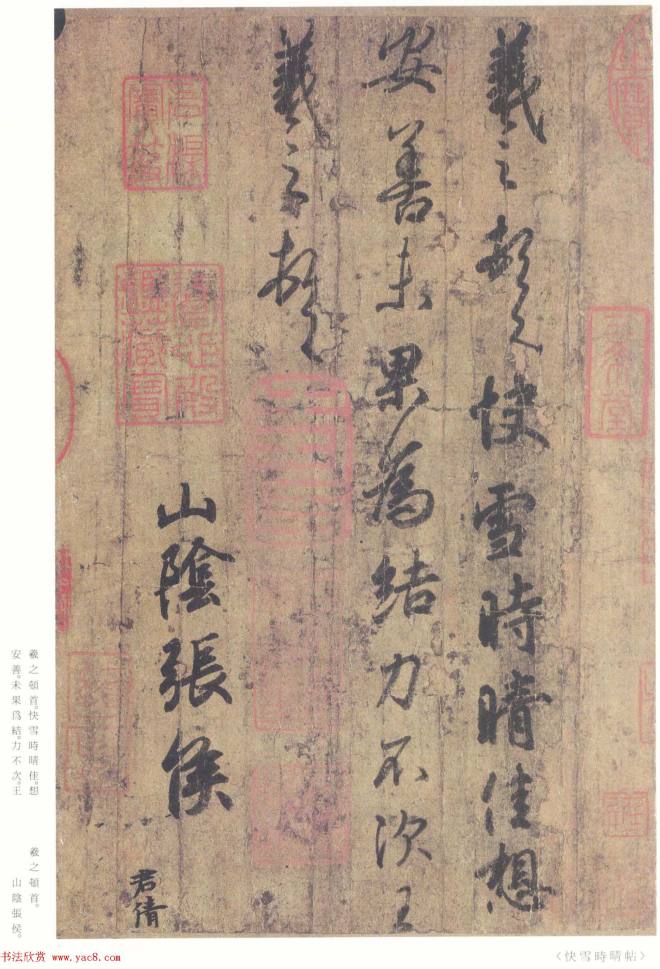 羲之頓首快雪時晴佳想
安善未果為結力不次王
羲之頓首
山陰張侯
君倩
羲之頓首。快雪時晴佳。想
安善。未果爲結。力不次。王
羲之頓首。
山陰張侯。
〈快雪時晴帖〉
书法欣赏 www.yac8.com